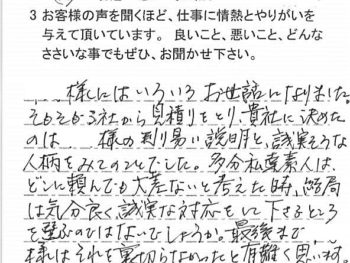 3 お客様の声を聞くほど、仕事に情熱とやりがいを
与えて頂いています。 良いこと、悪いこと、どんな
ささいな事でもぜひ、お聞かせ下さい。
様にはいろいろお世話になりました。
そもそも3社から見積りをとり、貴社に決めた
のは 様の判り易い説明と、誠実そうな
人柄をみてのことでした。多分私達素人は、
どこに頼んでも大差ないと考えた時、結局
は気分良く誠実な対応をして下さるところ
を選ぶのではないでしょうか。最後まで
様はそれを裏切らなかったと有難く思います。